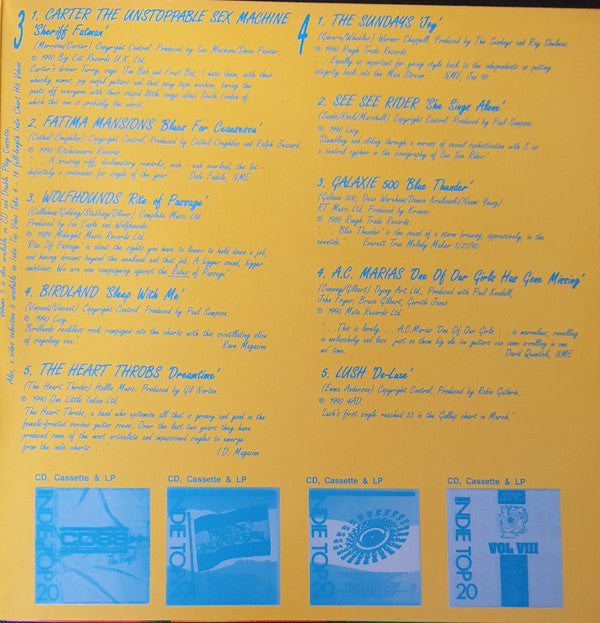 3
1. CARTER THE UNSTOPPABLE SEX MACHINE
'Sheriff Fatman'
(Morrison/Carter) Copyright Control. Produced by Sex Machine/Simon Painter.
℗ 1990 Big Cat Records U.K. Ltd.
Carter's driver Terry, says 'Jim Bob and Fruit Bat, I hate them, with their
whacky names, zig guitars and that pony tape machine, boring the
pants off everyone with their stupid little songs about South London of
which this one is probably the worst.'
2. FATIMA MANSIONS 'Blues For Ceausescu'
(Cathal Coughlan) Copyright Control. Produced by Cathal Coughlan and Ralph Jezzard.
℗ 1990 Kitchenware Records.
'... A bruising riff, declamatory remarks, wah-wah overload, the lot -
definitely a contender for single of the year' Dele Fadele, NME
3. WOLFHOUNDS 'Rite of Passage'
(Callahan/Golding/Stebbing/Oliver) Complete Music Ltd.
Produced by Ian Caple and Wolfhounds.
℗ 1989 Midnight Music Records Ltd.
'Rite Of Passage is about the rights you have to lower to hold down a job,
and having dreams beyond the weekend and that job. A bigger sound, bigger
ambitions. We are now campaigning against the Rites of Passage.
4. BIRDLAND 'Sleep With Me'
(Vincent/Vincent) Copyright Control. Produced by Paul Sampson.
℗ 1990 Lazy.
'Birdlands reckless rock rampaged into the charts with this scintillating slice
of singalong sex.' Rave Magazine
5. THE HEART THROBS 'Dreamtime'
(The Heart Throbs) Hallin Music. Produced by Gil Norton.
℗ 1990 One Little Indian Ltd.
'The Heart Throbs, a band who epitomise all that is groovy and good in the
female-fronted serious guitar scene. Over the last two years they have
produced some of the most articulate and impassioned singles to emerge
from the indie charts. I.D. Magazine
4
1. THE SUNDAYS 'Joy'
(Gavurin/Wheeler) Warner Chappell. Produced by The Sundays and Ray Shulman.
℗ 1990 Rough Trade Records.
'... Equally as important for giving style back to the independents as putting
integrity back into the Main Stream.' NME, Jan 90
2. SEE SEE RIDER 'She Sings Alone'
(Sande/Reid/Marshall) Copyright Control. Produced by Paul Sampson.
℗ 1990 Lazy.
'Stumbling and sliding through a morass of sexual sophistication with S as
a central cypher in the iconography of See See Rider'
3. GALAXIE 500 'Blue Thunder'
(Galaxie 500, Dean Wareham/Damon Krukowski/Naomi Young)
RT Music Ltd. Produced by Kramer.
℗ 1989 Rough Trade Records.
'... Blue Thunder' is the sound of a storm brewing, oppressively, in the
oventide.' Everett True Melody Maker 1/27/90
4. A.C. MARIAS 'One Of Our Girls Has Gone Missing'
(Conway/Gilbert) Dying Art Ltd. Produced with Paul Kendall,
John Fryer, Bruce Gilbert, Gareth Jones.
℗ 1990 Mute Records Ltd.
'...This is lovely ... A.C.Marias 'One Of Our Girls ... is marvelous, revelling
in melancholy and loss ... just as them big ole ice guitars can come a-rolling in one
mo' time.' David Quantick, NME
5. LUSH 'De-Luxe'
(Emma Anderson) Copyright Control. Produced by Robin Guthrie.
℗ 1990 4AD.
'Lush's first single reached 53 in the Gallup chart in March.'
CD, Cassette & LP
CD, Cassette & LP
CD, Cassette & LP
CD, Cassette & LP
INDIE TOP 20
INDIE TOP 20
INDIE TOP 20
INDIE TOP 20
VOL VIII